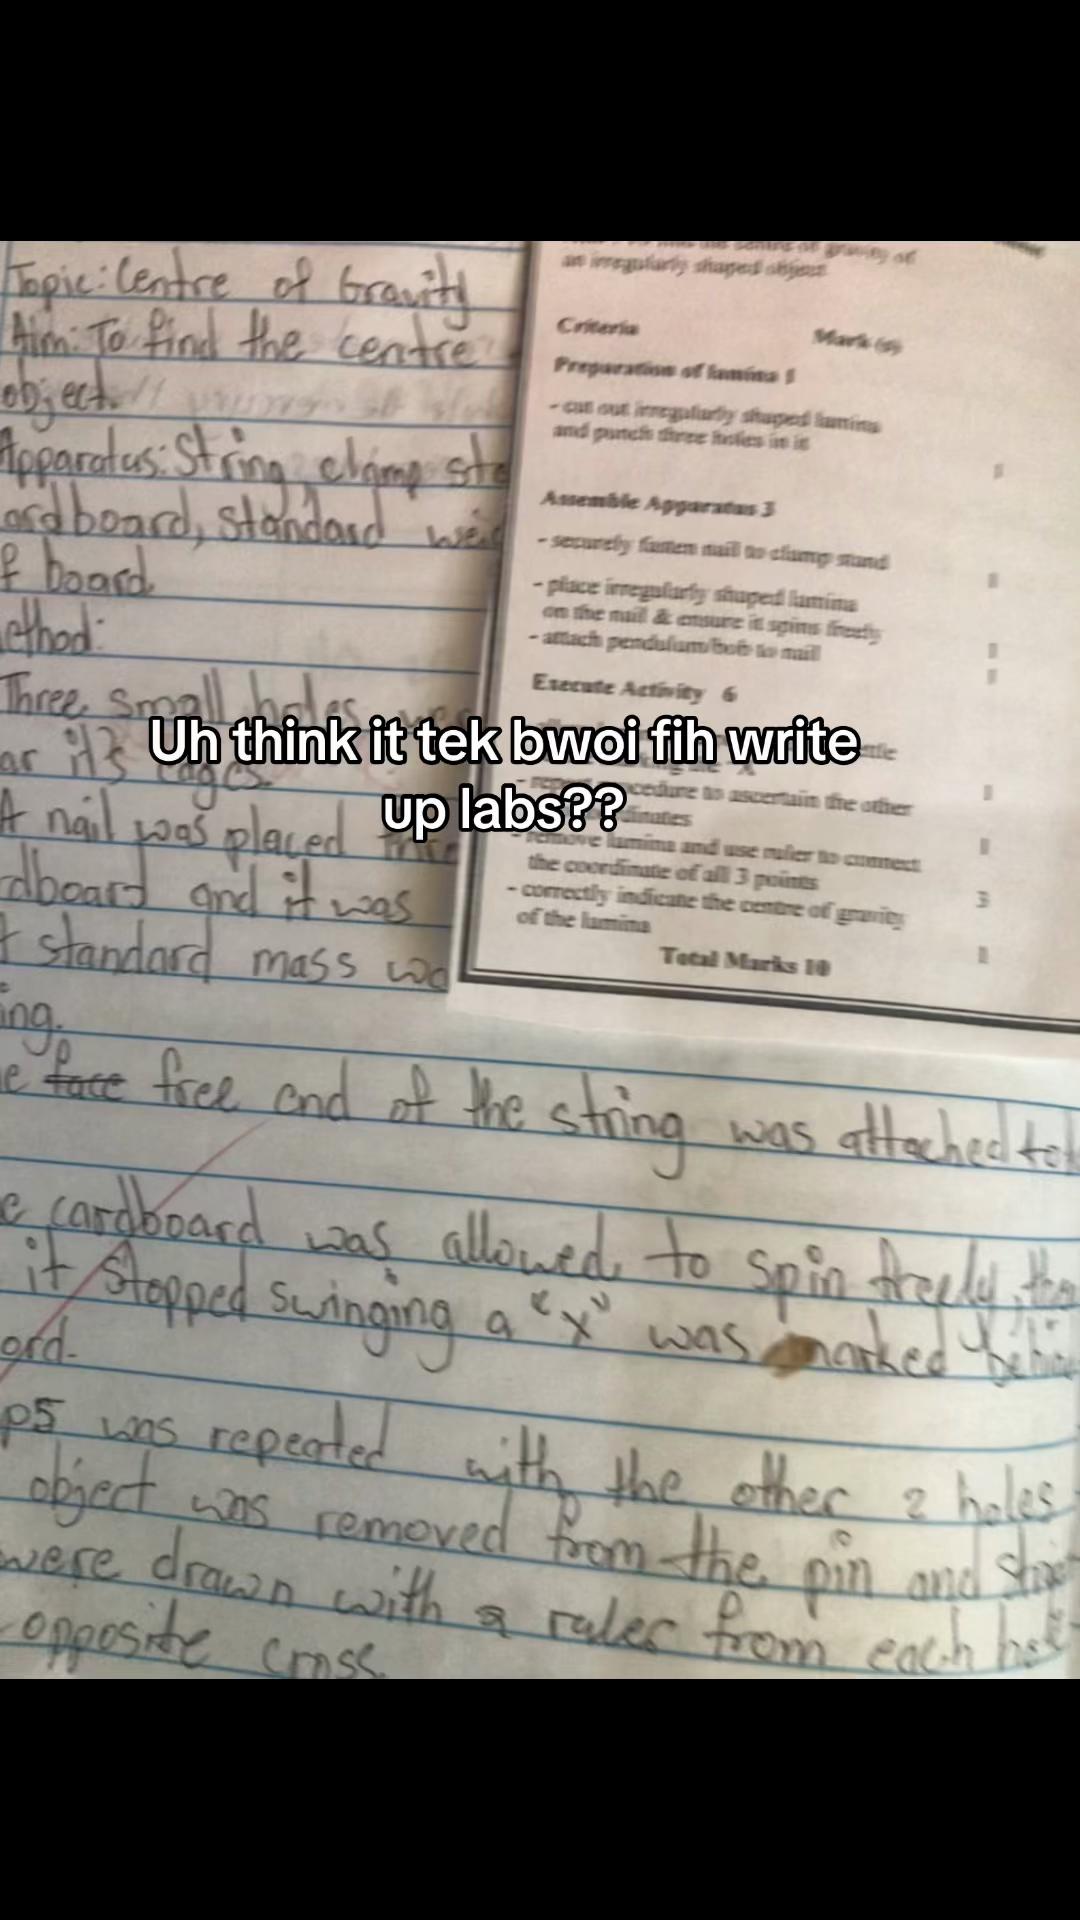 Topic: Centre of Gravity
Aim: To find the centre
object.
Apparatus: String, clamp sta
ardboard, standard weig
f board.
ethod:
Three small holes
ar it's edges.
A nail was placed
rdboard and it was
t standard mass wa
ing.
e face free end of the string was attached to
e cardboard was allowed to spin freely, the
it stopped swinging a "x" was marked behin
ord.
p5 was repeated with the other 2 holes
object was removed from the pin and
were drawn with a ruler from each
opposite cross.
centre of gravity of
an irregularly shaped object
Criteria Mark (s)
Preparation of lamina 1
- cut out irregularly shaped lamina
and punch three holes in it
1
Assemble Apparatus 3
- securely fasten nail to clamp stand
1
- place irregularly shaped lamina
on the nail & ensure it spins freely
1
- attach pendulum/bob to nail
1
Execute Activity 6
"X"
1
- repeat procedure to ascertain the other
1
- remove lamina and use ruler to connect
the coordinate of all 3 points
3
- correctly indicate the centre of gravity
of the lamina
1
Total Marks 10
Uh think it tek bwoi fih write
up labs??